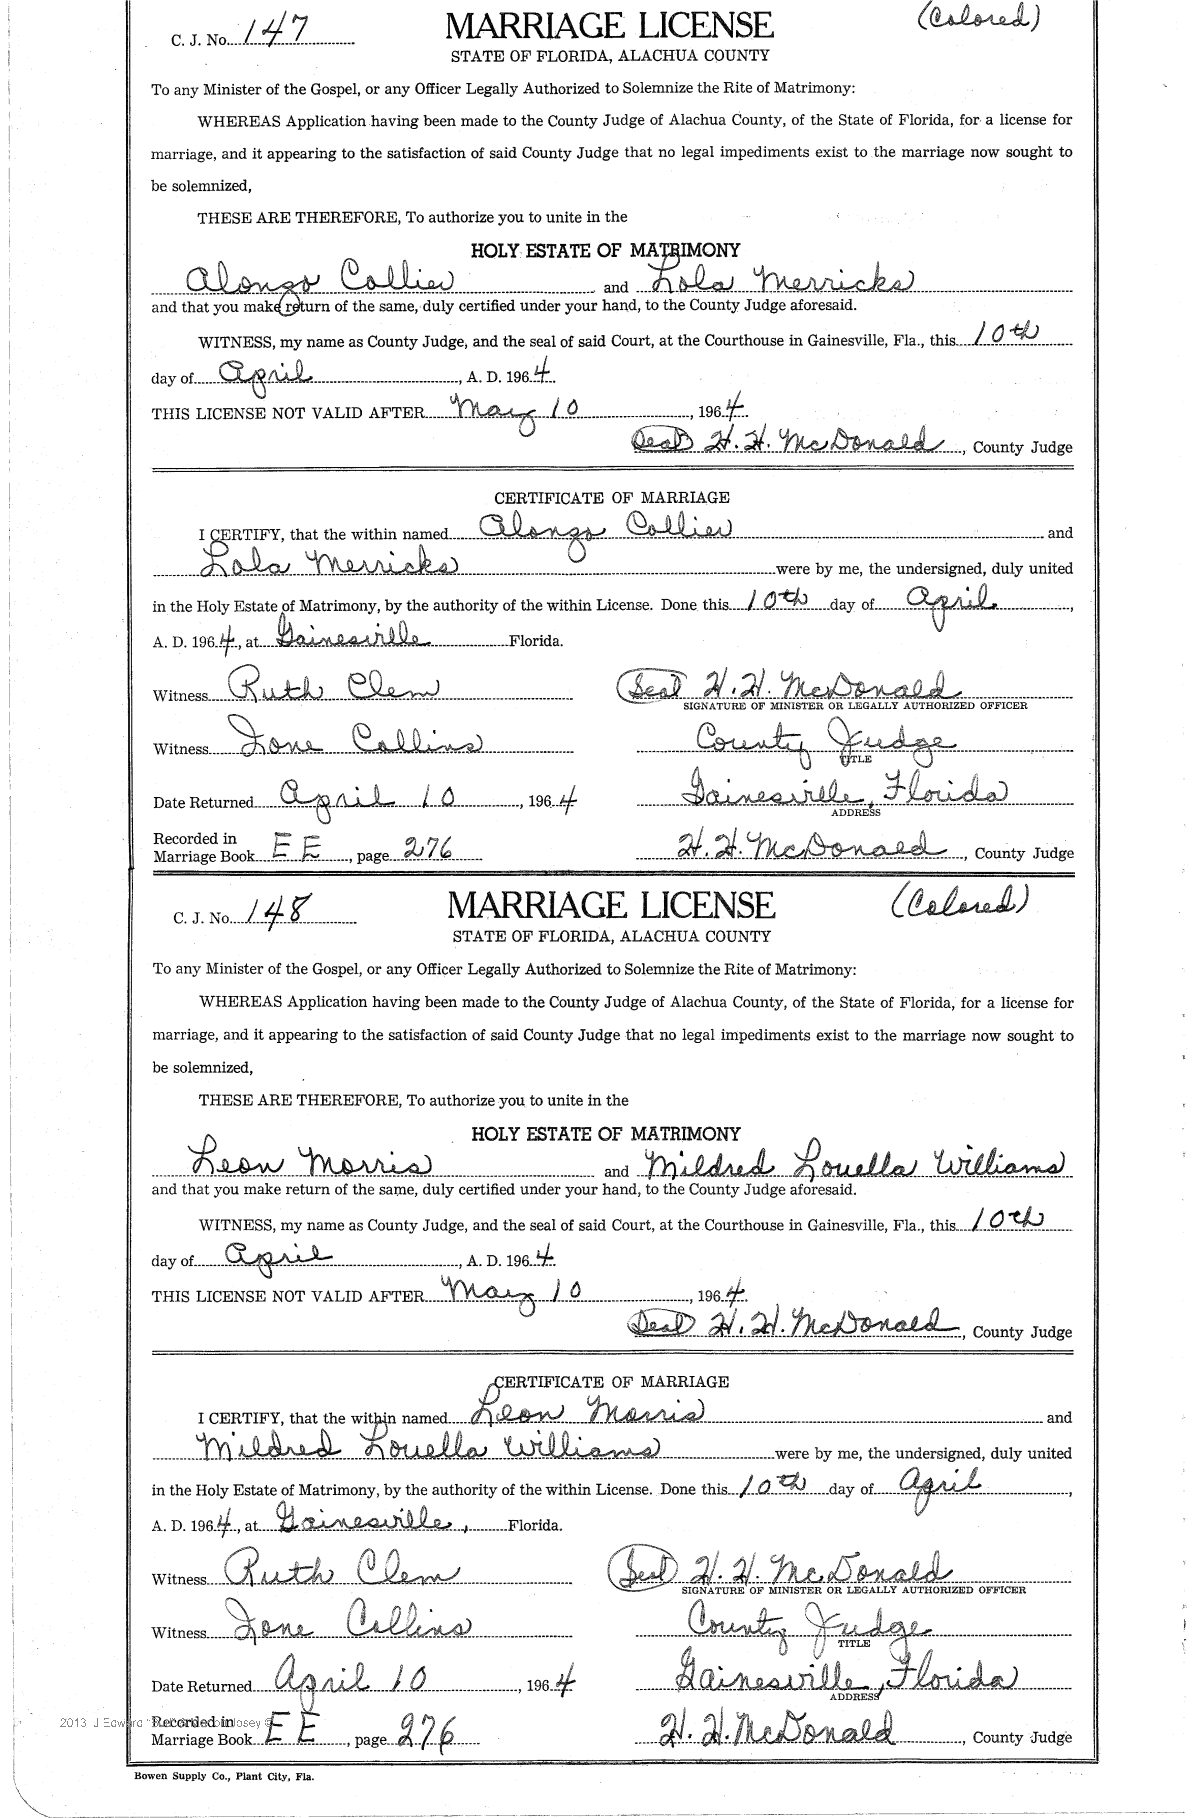 C. J. No. 147 MARRIAGE LICENSE (Colored)
STATE OF FLORIDA, ALACHUA COUNTY
To any Minister of the Gospel, or any Officer Legally Authorized to Solemnize the Rite of Matrimony:
WHEREAS Application having been made to the County Judge of Alachua County, of the State of Florida, for a license for
marriage, and it appearing to the satisfaction of said County Judge that no legal impediments exist to the marriage now sought to
be solemnized,
THESE ARE THEREFORE, To authorize you to unite in the
HOLY ESTATE OF MATRIMONY
Alonzo Collier and Lola Merricks
and that you make return of the same, duly certified under your hand, to the County Judge aforesaid.
WITNESS, my name as County Judge, and the seal of said Court, at the Courthouse in Gainesville, Fla., this 10th
day of April, A. D. 1964.
THIS LICENSE NOT VALID AFTER May 10, 1964.
(Seal) H. H. McDonald, County Judge
CERTIFICATE OF MARRIAGE
I CERTIFY, that the within named Alonzo Collier and
Lola Merricks were by me, the undersigned, duly united
in the Holy Estate of Matrimony, by the authority of the within License. Done this 10th day of April,
A. D. 1964, at Gainesville Florida.
Witness Ruth Clem (Seal) H. H. McDonald
SIGNATURE OF MINISTER OR LEGALLY AUTHORIZED OFFICER
Witness Ione Collins County Judge
TITLE
Date Returned April 10, 1964 Gainesville, Florida
ADDRESS
Recorded in
Marriage Book EE, page 276 H. H. McDonald, County Judge
C. J. No. 148 MARRIAGE LICENSE (Colored)
STATE OF FLORIDA, ALACHUA COUNTY
To any Minister of the Gospel, or any Officer Legally Authorized to Solemnize the Rite of Matrimony:
WHEREAS Application having been made to the County Judge of Alachua County, of the State of Florida, for a license for
marriage, and it appearing to the satisfaction of said County Judge that no legal impediments exist to the marriage now sought to
be solemnized,
THESE ARE THEREFORE, To authorize you to unite in the
HOLY ESTATE OF MATRIMONY
Leon Morris and Mildred Louella Williams
and that you make return of the same, duly certified under your hand, to the County Judge aforesaid.
WITNESS, my name as County Judge, and the seal of said Court, at the Courthouse in Gainesville, Fla., this 10th
day of April, A. D. 1964.
THIS LICENSE NOT VALID AFTER May 10, 1964.
(Seal) H. H. McDonald, County Judge
CERTIFICATE OF MARRIAGE
I CERTIFY, that the within named Leon Morris and
Mildred Louella Williams were by me, the undersigned, duly united
in the Holy Estate of Matrimony, by the authority of the within License. Done this 10th day of April,
A. D. 1964, at Gainesville, Florida.
Witness Ruth Clem (Seal) H. H. McDonald
SIGNATURE OF MINISTER OR LEGALLY AUTHORIZED OFFICER
Witness Ione Collins County Judge
TITLE
Date Returned April 10, 1964 Gainesville, Florida
ADDRESS
2013 J Edward Josey ©
Recorded in
Marriage Book EE, page 276 H. H. McDonald, County Judge
Bowen Supply Co., Plant City, Fla.